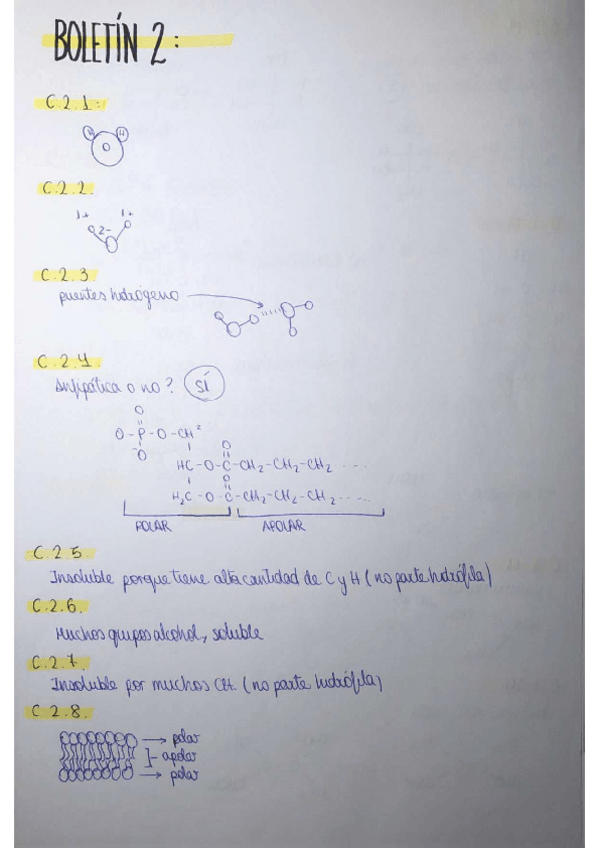 BOLETÍN 2:
C.2.1:
H H
O
C.2.2.
1+ 1+
2-
C.2.3
puentes hidrógeno
C.2.4
Anfipática o no? SÍ
O
O-P-O-CH²
-O O
HC-O-C-CH₂-CH₂-CH₂ ....
O
H₂C-O-C-CH₂-CH₂-CH₂.....
POLAR APOLAR
C.2.5.
Insoluble porque tiene alta cantidad de C y H (no parte hidrófila)
C.2.6.
Muchos grupos alcohol, soluble
C.2.7.
Insoluble por muchos CH. (no parte hidrófila)
C.2.8.
polar
apolar
polar